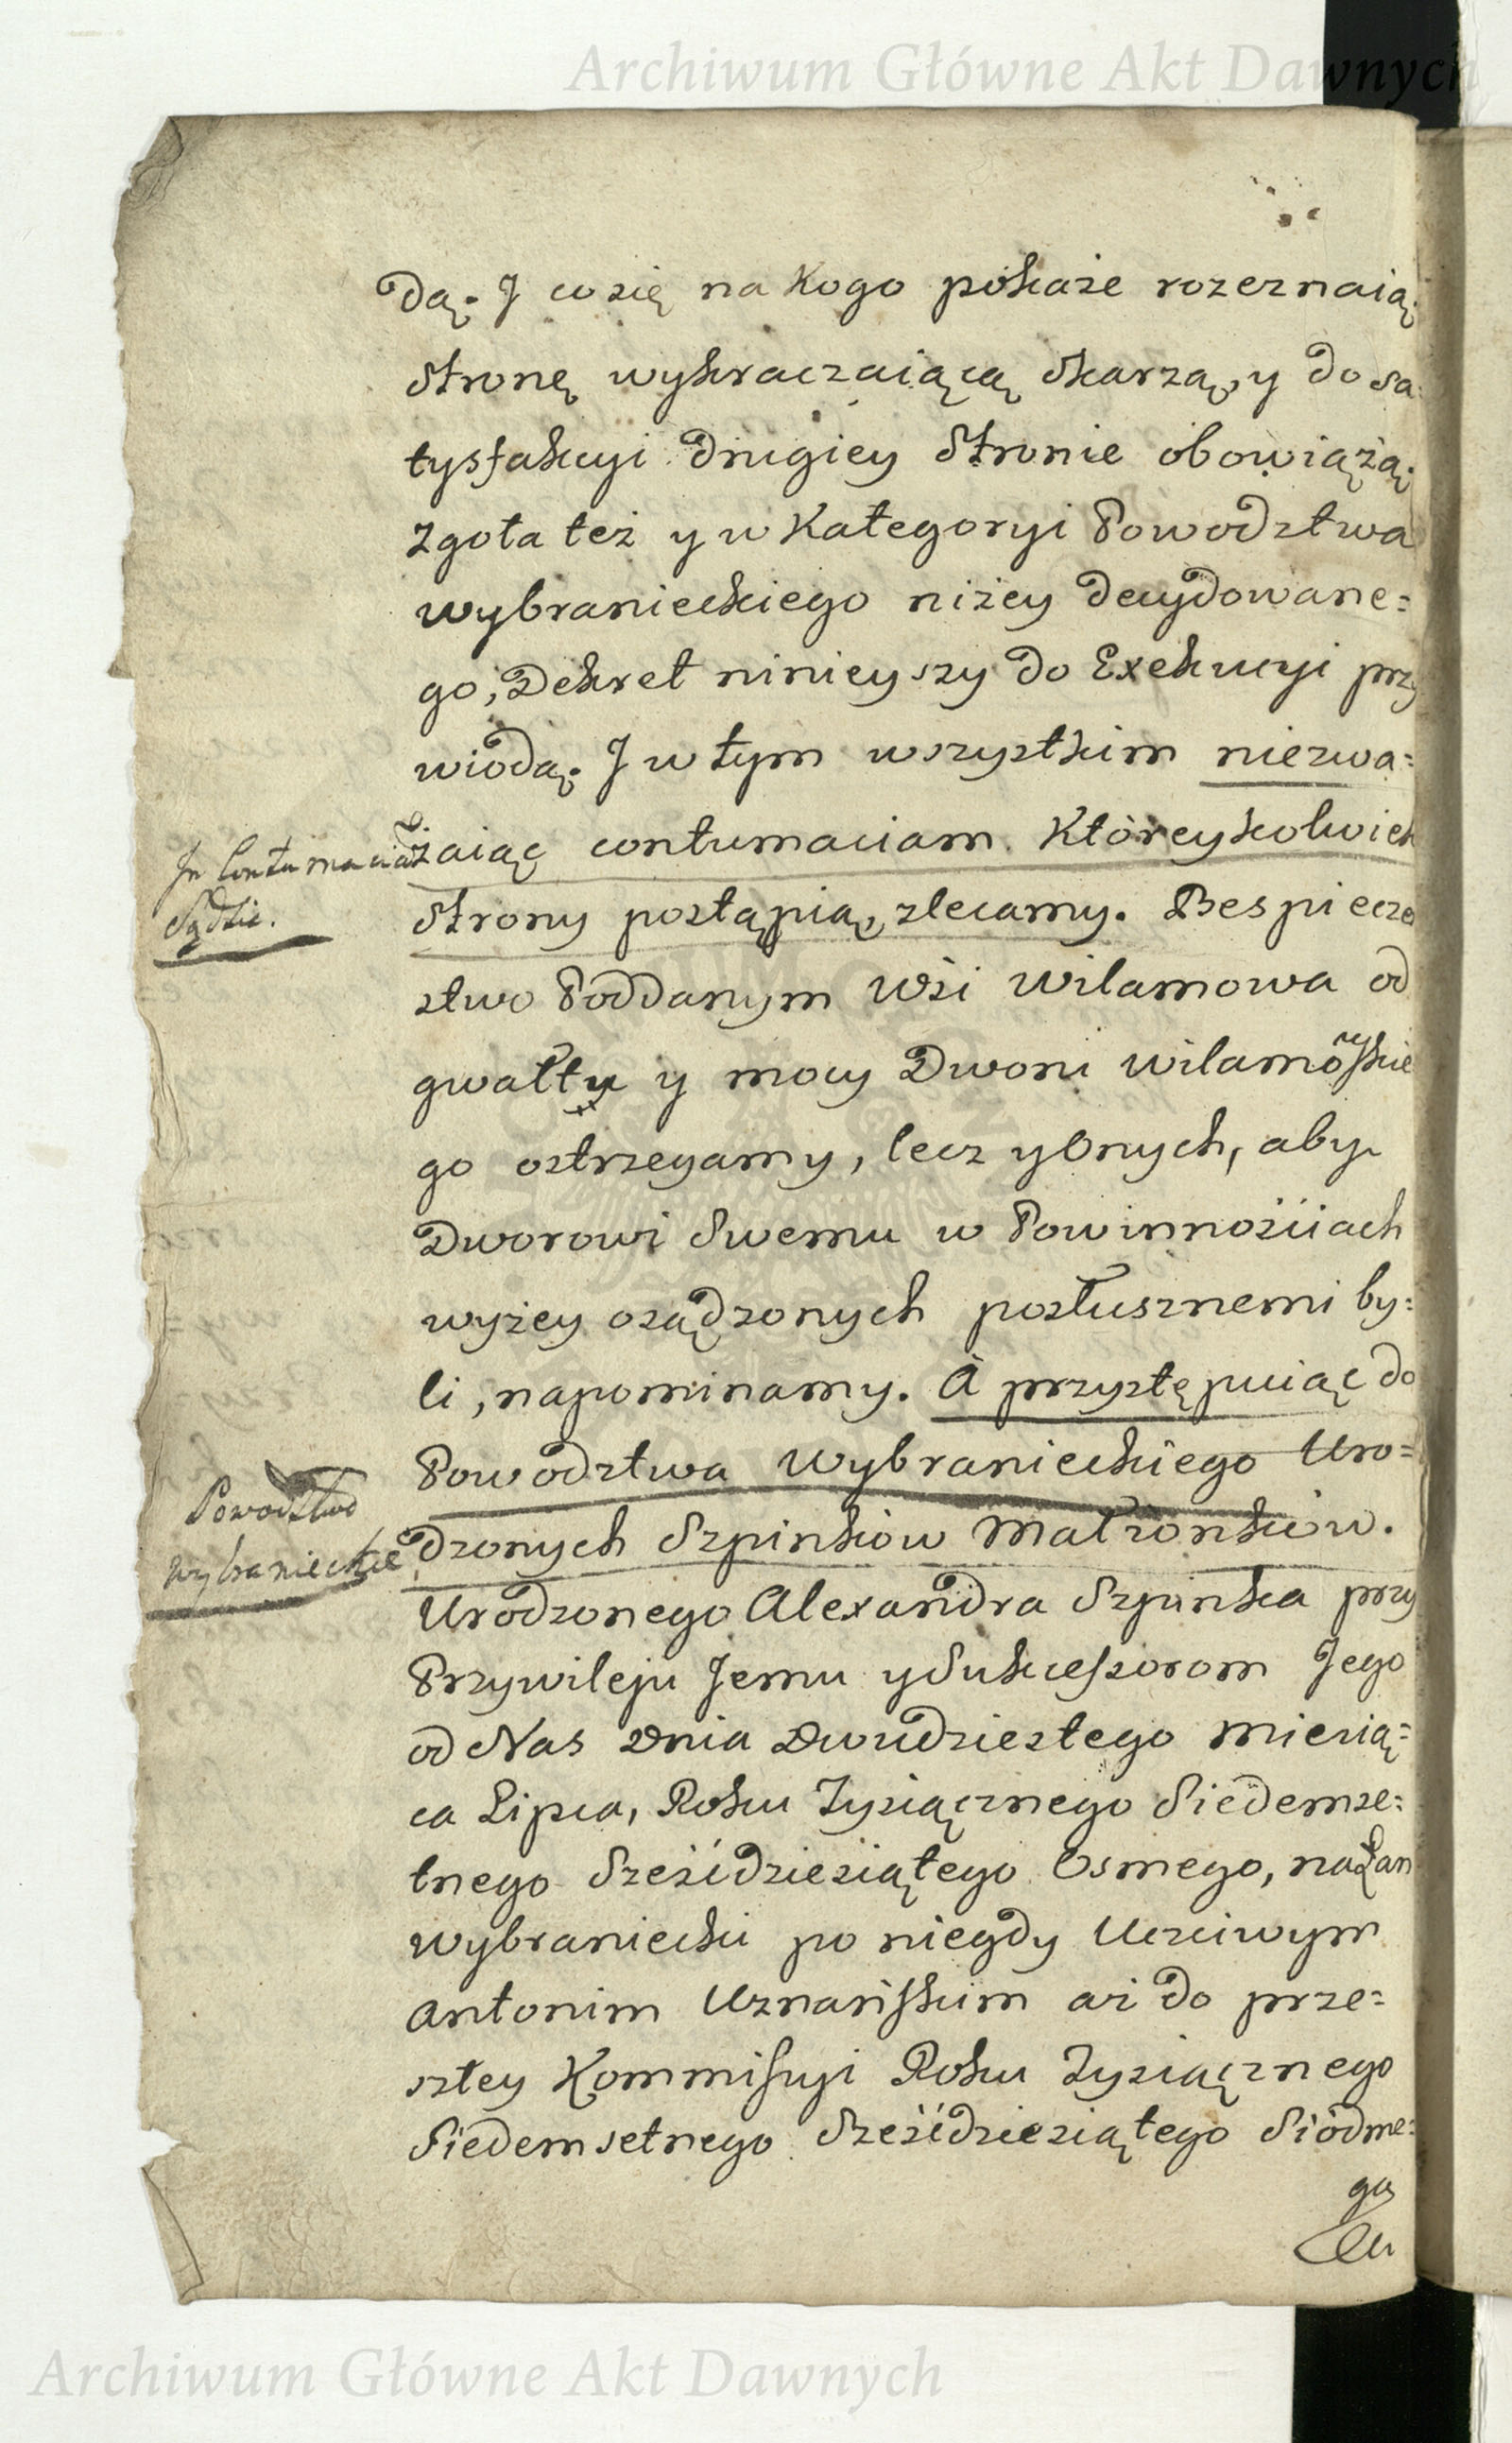 Archiwum Główne Akt Dawnych
dą. J co się na Kogo pokaże rozeznaią,
Stronę wykraczaiącą skarzą, y do sa
tysfakcyi drugiey Stronie obowiążą.
Zgoła też y w Kategoryi Powodztwa
wybranieckiego niżey decydowane=
go, Dekret ninieyszy do Exekucyi przy
wiodą. J w tym wszystkim niezwa=
In Contumaciã
żaiąc contumaciam Któreykolwiek
Sądzić.
Strony postąpią, zlecamy. Bespiecze
stwo Poddanym Wsi Wilamowa od
gwałtu y mocy Dworu Wilamowskie
go ostrzegamy, lecz y Onych, aby
Dworowi Swemu w Powinnościach
wyżey osądzonych posłusznemi by=
li, napominamy. A przystępuiąc do
Powodztwa Wybranieckiego Uro=
Powodztwo
wybranieckie
dzonych Szpinków Małżonków.
Urodzonego Alexandra Szpinka przy
Przywileju Jemu y Sukcessorom Jego
od Nas Dnia Dwudziestego Miesią=
ca Lipca, Roku Tysiącznego Siedemse=
tnego Sześćdziesiątego Osmego, na Łan
wybraniecki po niegdy Uczciwym
Antonim Uznańskim aż do prze=
szłey Kommissyi Roku Tysiącznego
Siedemsetnego Sześćdziesiątego Siódme=
go
Archiwum Główne Akt Dawnych